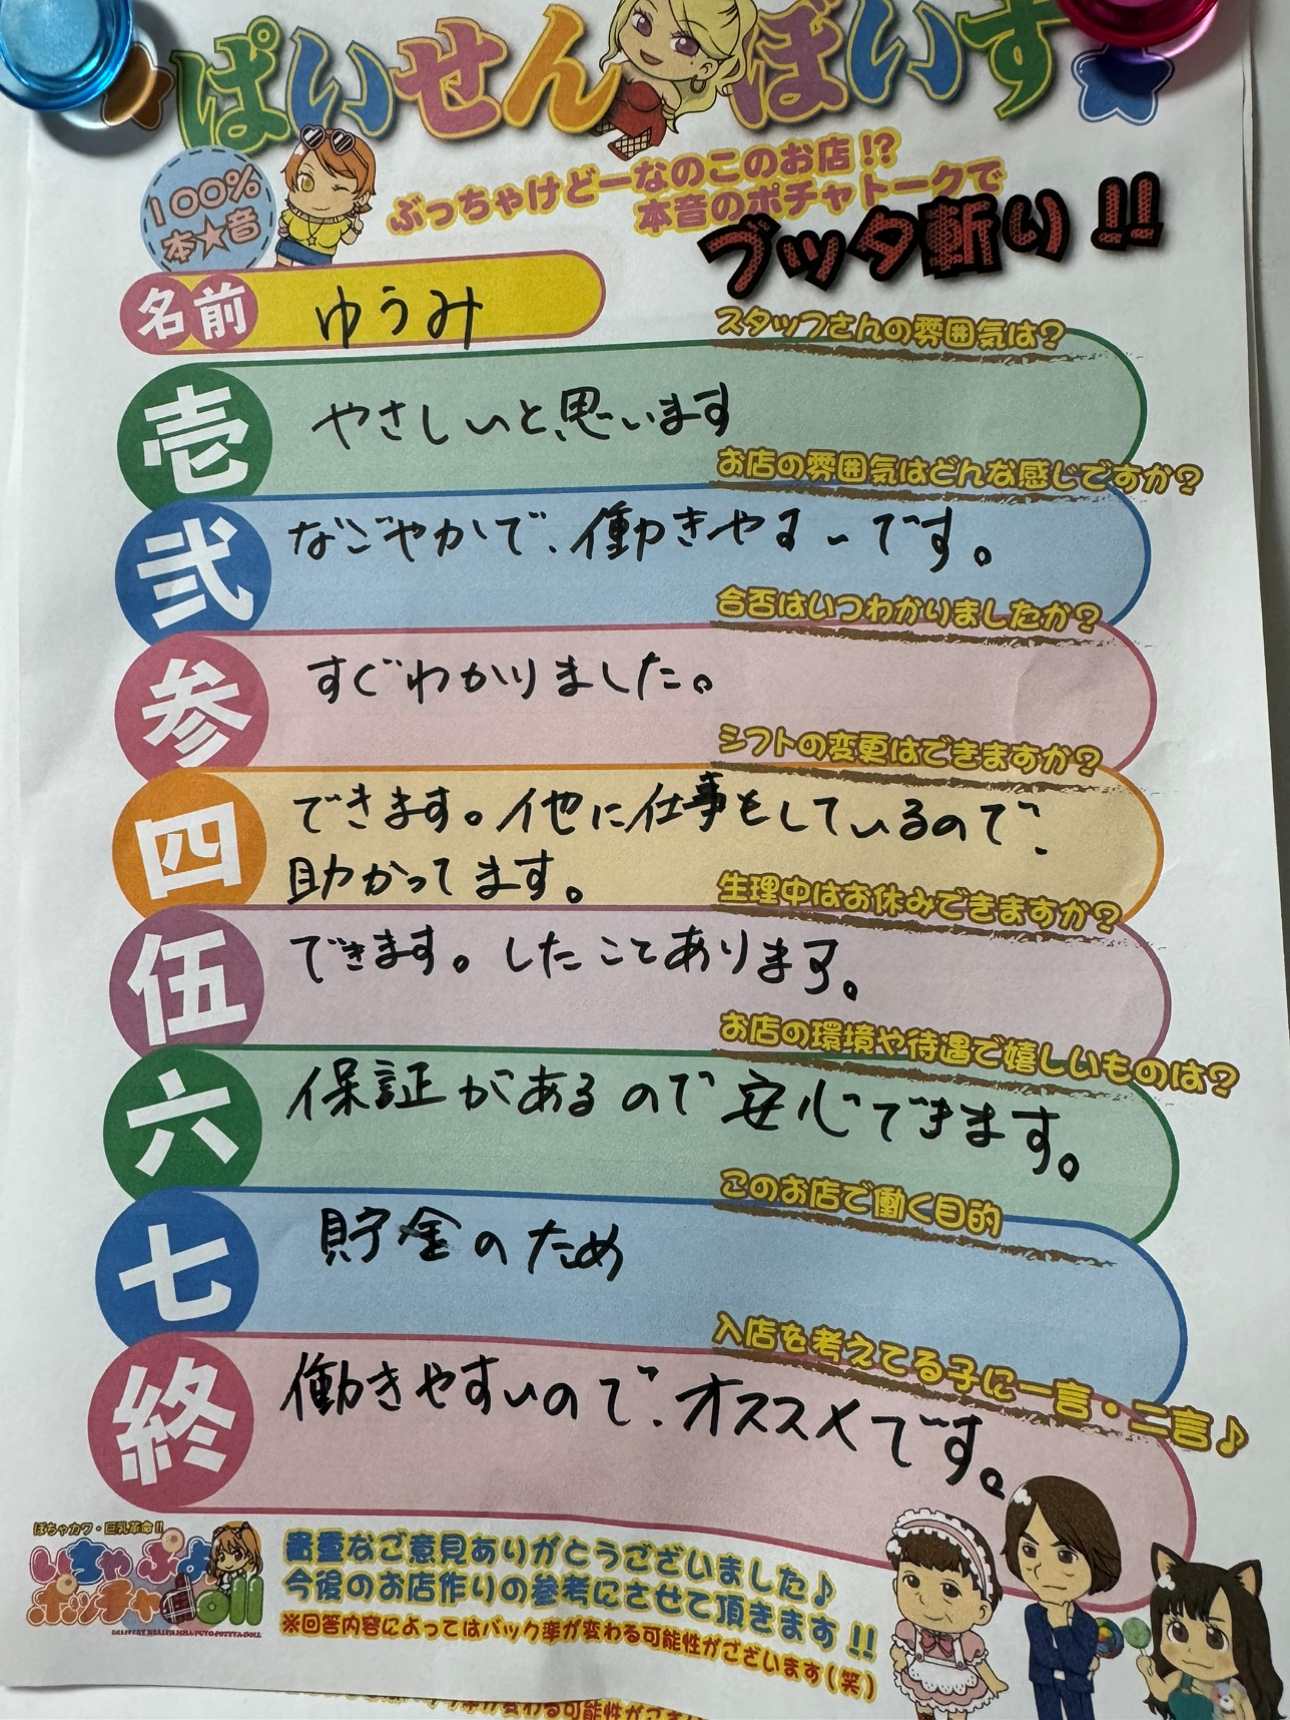 ぱいせんぼいす
100%
本★音
ぶっちゃけどーなのこのお店!?
本音のポチャトークで
ブッタ斬り!!
名前 ゆうみ
スタッフさんの雰囲気は?
壱 やさしいと思います
お店の雰囲気はどんな感じですか?
弐 なごやかで、働きやすいです。
合否はいつわかりましたか?
参 すぐわかりました。
シフトの変更はできますか?
四 できます。他に仕事もしているので、
助かってます。
生理中はお休みできますか?
伍 できます。したことあります。
お店の環境や待遇で嬉しいものは?
六 保証があるので安心できます。
このお店で働く目的
七 貯金のため
入店を考えてる子に一言・二言♪
終 働きやすいので、オススメです。
ぽちゃカワ・巨乳革命!!
いちゃぷよ
ポッチャdoll
貴重なご意見ありがとうございました♪
今後のお店作りの参考にさせて頂きます!!
※回答内容によってはバック率が変わる可能性がございます(笑)